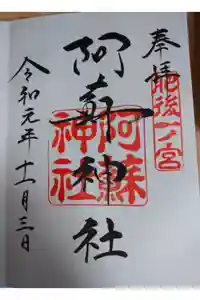 奉拝
肥後一ノ宮
阿蘇神社
阿蘇神社
令和元年十一月三日